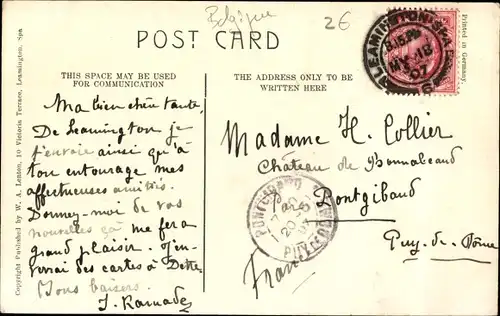 Belgique
2€
POST CARD
THIS SPACE MAY BE USED
FOR COMMUNICATION
THE ADDRESS ONLY TO BE
WRITTEN HERE
Printed in Germany.
Copyright Published by W. A. Lenton, 10 Victoria Terrace, Leamington. Spa
LEAMINGTON SPA
MY 18
07
Ma bien chère tante,
De Leamington je
t'envoie ainsi qu'à
ton entourage mes
affectueuses amitiés.
Donnez-moi de vos
nouvelles ça me fera
grand plaisir. J'en-
verrai des cartes à
Bons baisers.
Madame H. Collier
Château de
Pontgibaud
Puy-de-Dôme
France
PONTGIBAUD
20
PUY-DE-DOME